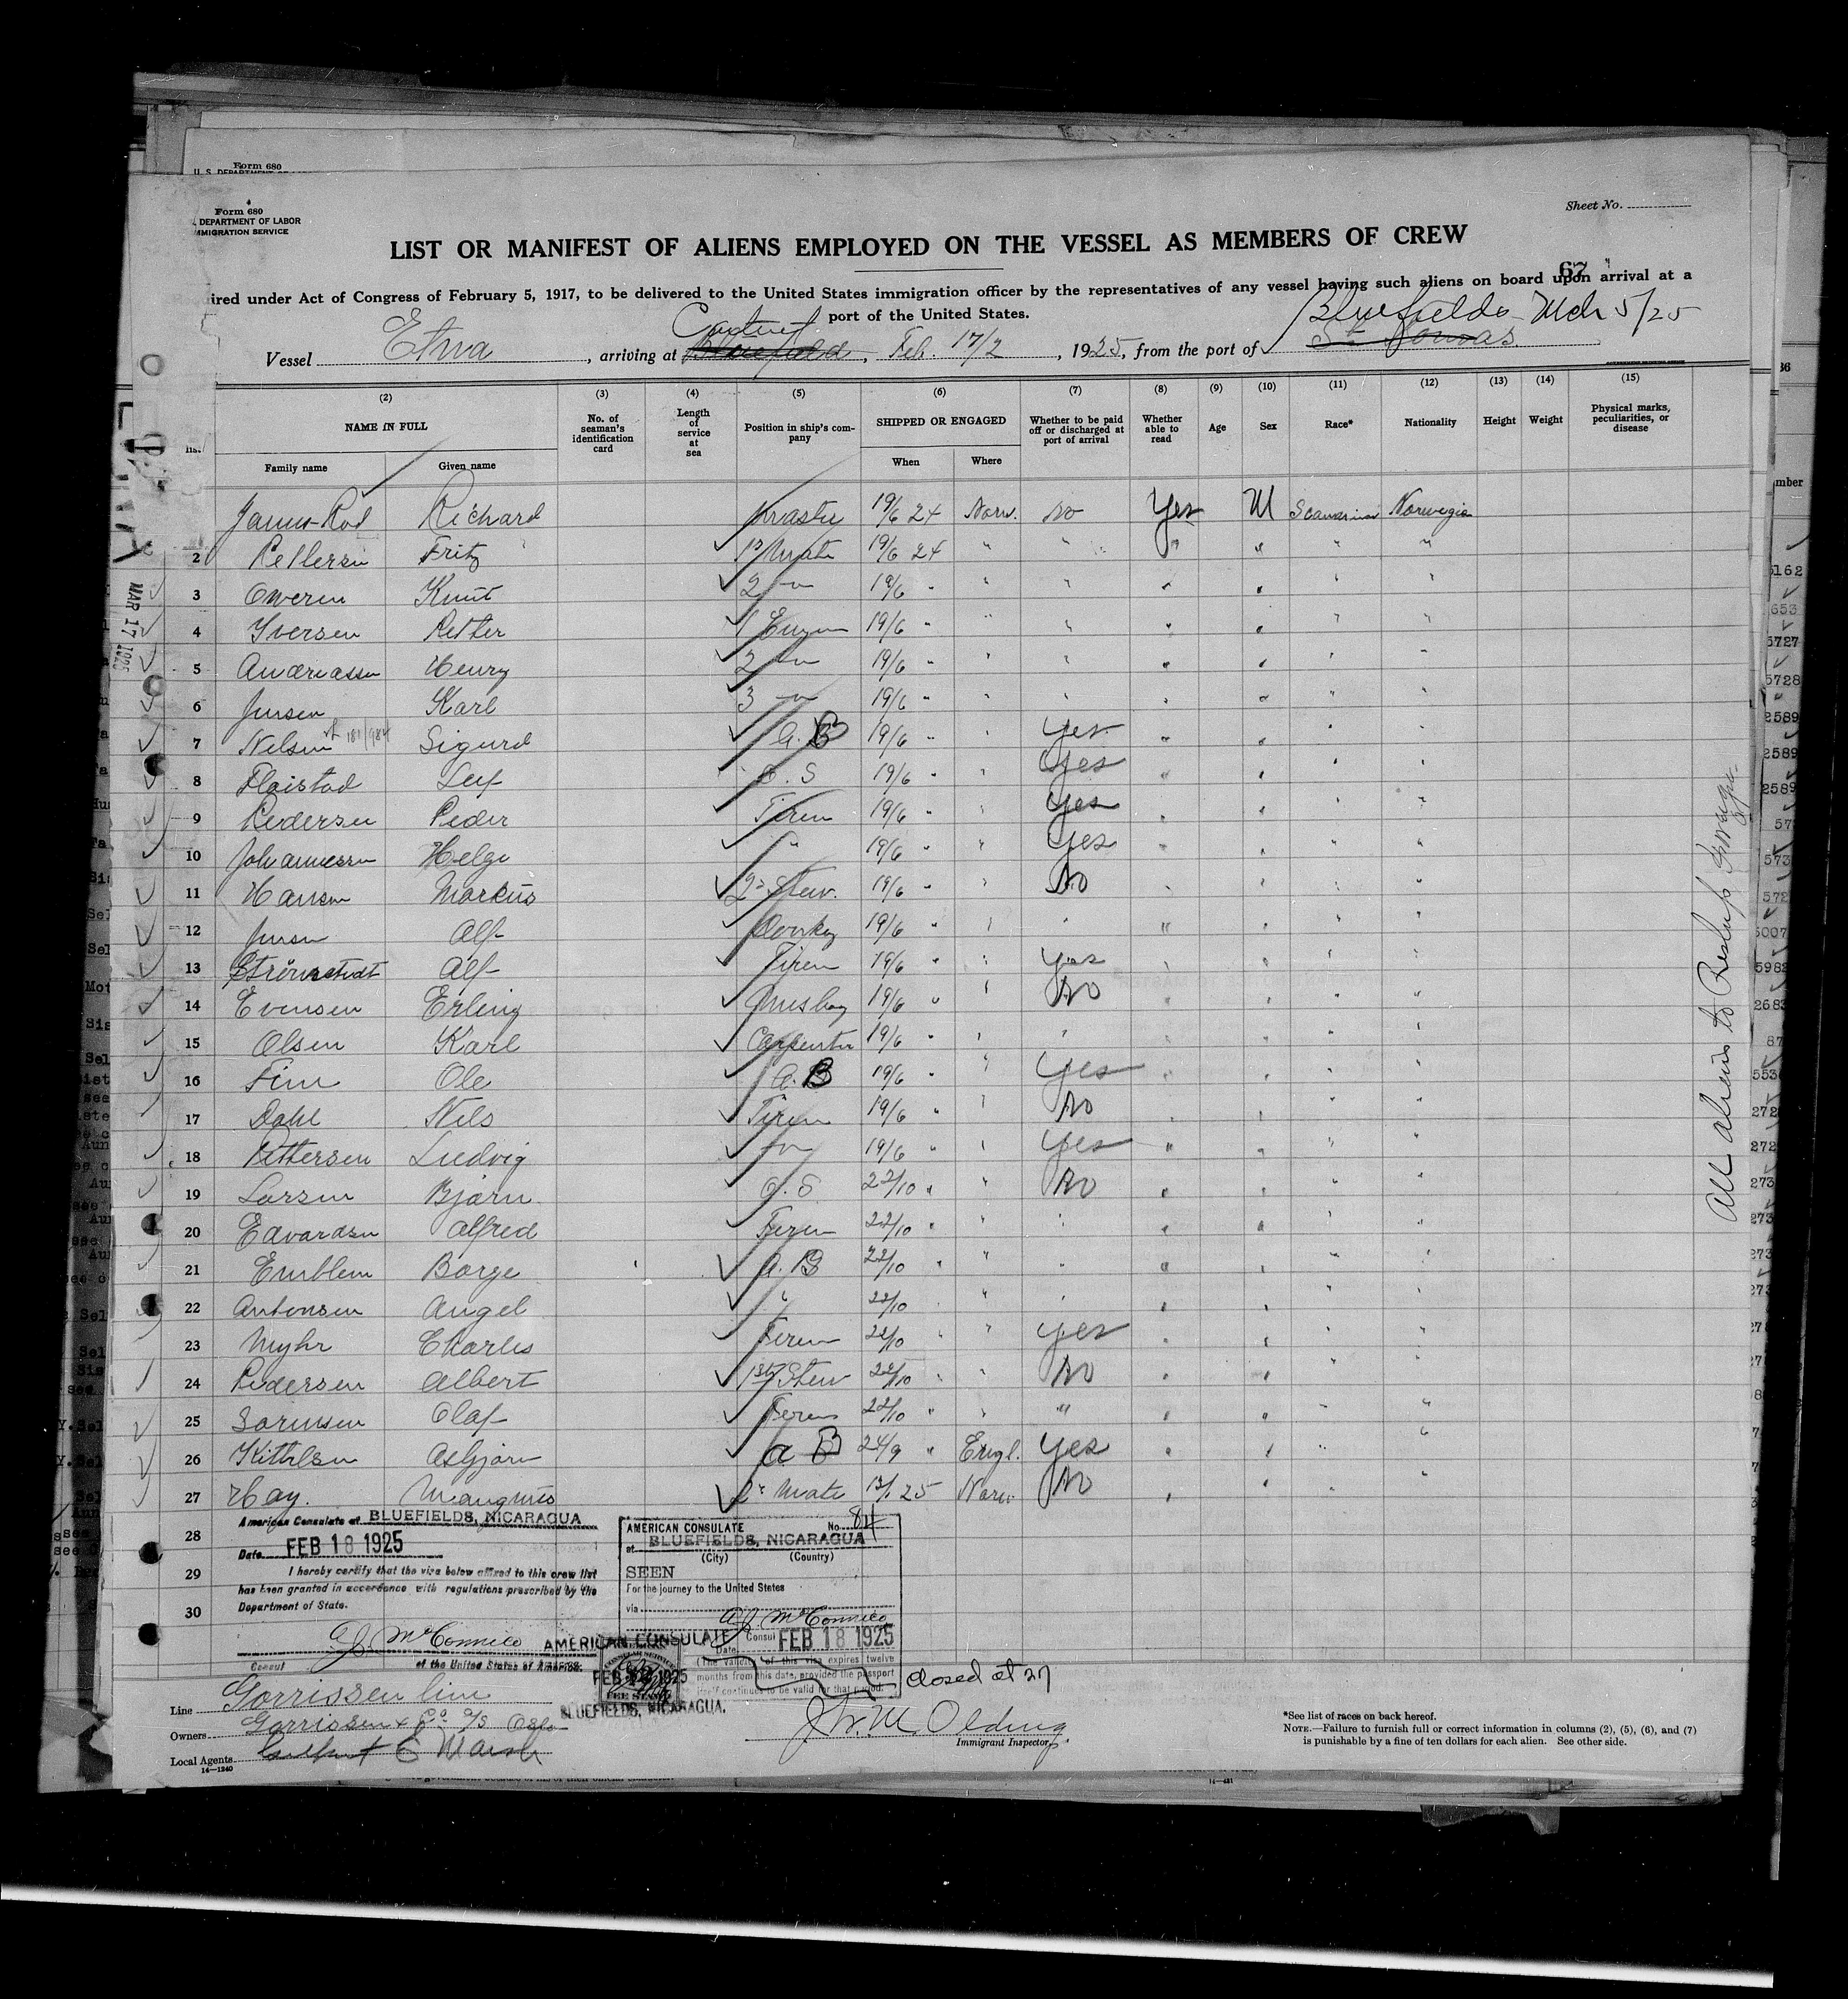 Form 680
U. S. DEPARTMENT OF LABOR
Form 680
DEPARTMENT OF LABOR
MMIGRATION SERVICE
Sheet No.
LIST OR MANIFEST OF ALIENS EMPLOYED ON THE VESSEL AS MEMBERS OF CREW
67
ired under Act of Congress of February 5, 1917, to be delivered to the United States immigration officer by the representatives of any vessel having such aliens on board upon arrival at a
port of the United States.
Bluefields Mch 5/25
Vessel Etna, arriving at Bluefield, Feb. 17/2, 1925, from the port of
(2) (3) (4) (5) (6) (7) (8) (9) (10) (11) (12) (13) (14) (15)
NAME IN FULL No. of seaman's identification card Length of service at sea Position in ship's company SHIPPED OR ENGAGED Whether to be paid off or discharged at port of arrival Whether able to read Age Sex Race* Nationality Height Weight Physical marks, peculiarities, or disease
Family name Given name When Where
Richard 19/6 24 Norw. No Yes M Norwegia
2 Fritz 1 Mate 19/6 24 " " " " " "
3 Knut 2 " 19/6 " " " " " " "
4 Iversen Petter 1 19/6 " " " " " " "
5 Andreassen Henry 2 " 19/6 " " " " " " "
6 Jensen Karl 3 " 19/6 " " " " " " "
7 Nelsen Sigurd A. B 19/6 " " Yes " " " "
8 Flaistad Leif O. S 19/6 " " Yes " " " "
9 Pedersen Peder Firem 19/6 " " Yes " " " "
10 Johannessen Helge " 19/6 " " Yes " " " "
11 Hansen Markus 2 Stew. 19/6 " " No " " " "
12 Jensen Alf Donkey 19/6 " " " " " " "
13 Strömstedt Alf Firem 19/6 " " Yes " " " "
14 Evensen Erling Messboy 19/6 " " No " " " "
15 Olsen Karl Carpenter 19/6 " " " " " " "
16 Ole A. B 19/6 " " Yes " " " "
17 Dahl Nils Firem 19/6 " " No " " " "
18 Pettersen Ludvig " 19/6 " " Yes " " " "
19 Larsen Bjarn O. S 22/10 " " No " " " "
20 Edvardsen Alfred Firem 22/10 " " " " " " "
21 Emblem Borge A. B 22/10 " " " " " " "
22 Antonsen Angel " 22/10 " " " " " " "
23 Myhr Charles Firem 22/10 " " Yes " " " "
24 Pedersen Albert 1st Stew 22/10 " " No " " " "
25 Sorensen Olaf Firem 22/10 " " " " " " "
26 Asbjørn A B 24/9 " Engl. Yes " " " "
27 Hay. Mangnus 2 Mate 13/1 25 Norw No " " "
28
29
30
All aliens to Reship Foreign.
MAR 17 1925
American Consulate at BLUEFIELDS, NICARAGUA
Date FEB 18 1925
I hereby certify that the visa below affixed to this crew list
has been granted in accordance with regulations prescribed by the
Department of State.
McConnico
Consul of the United States of America.
AMERICAN CONSULATE No. 84
at BLUEFIELDS, NICARAGUA
(City) (Country)
SEEN
For the journey to the United States
via
McConnico
Consul
Date FEB 18 1925
(The validity of this visa expires twelve
months from this date, provided the passport
itself continues to be valid for that period.
AMERICAN CONSULATE
FEB 18 1925
BLUEFIELDS, NICARAGUA.
CONSULAR SERVICE
FEE STAMP
closed at 27
Line Gorrissen line
Owners Gorrissen & Co. a/s Oslo
Local Agents C Marsh
14—1240
Olding
Immigrant Inspector.
*See list of races on back hereof.
NOTE.—Failure to furnish full or correct information in columns (2), (5), (6), and (7)
is punishable by a fine of ten dollars for each alien. See other side.